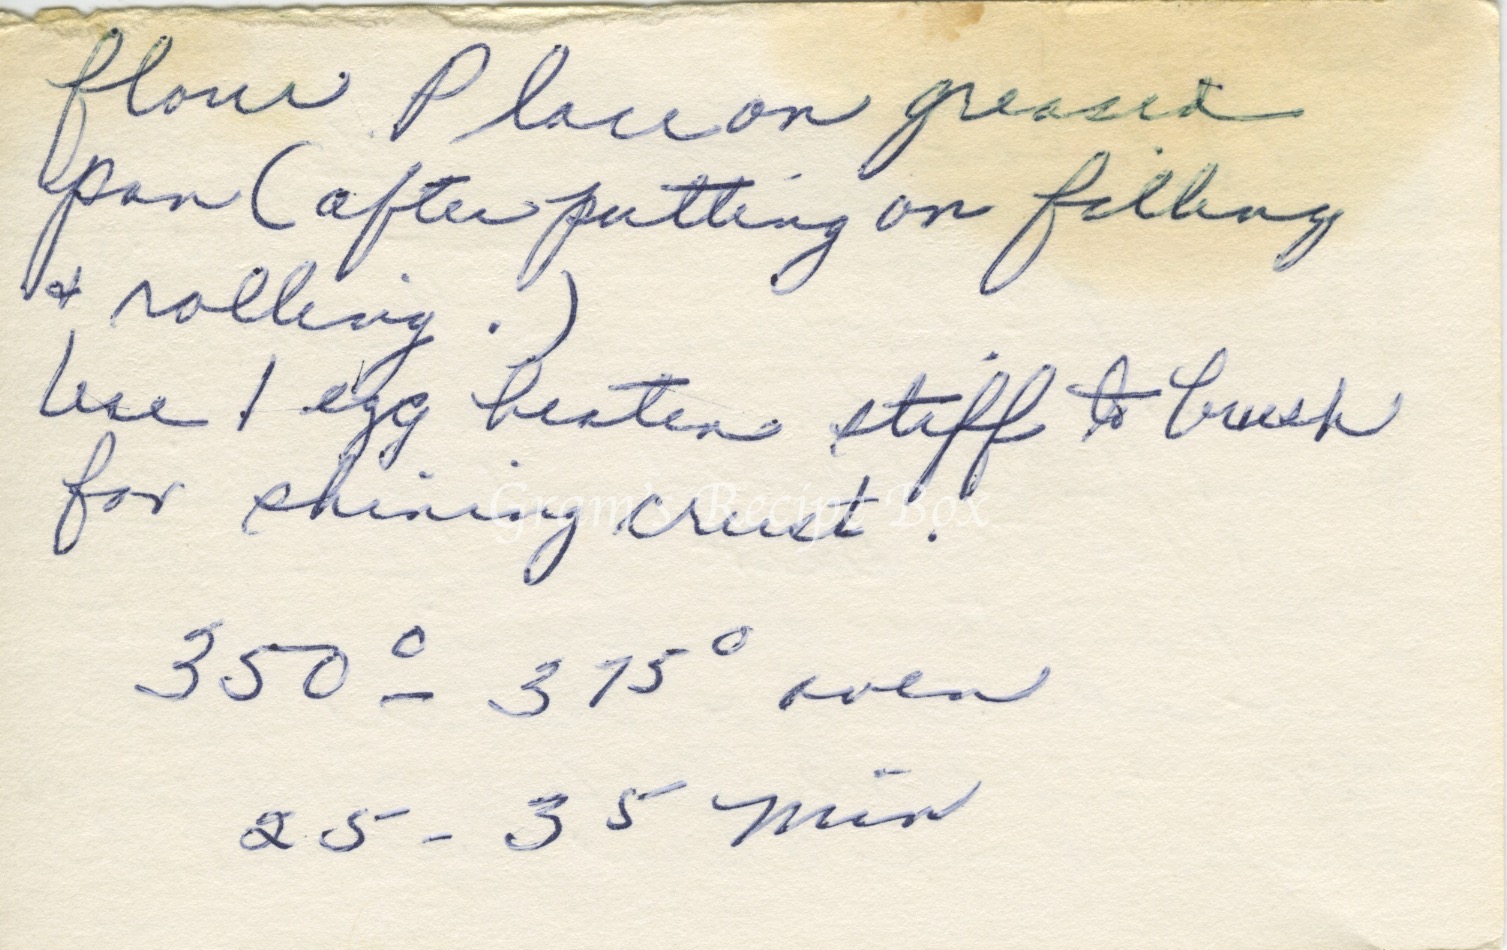 flour Place on greased
pan (after putting on filling
& rolling.)
Use 1 egg beaten stiff to brush
for shining crust.
Gram's Recipe Box
350° - 375° oven
25 - 35 min